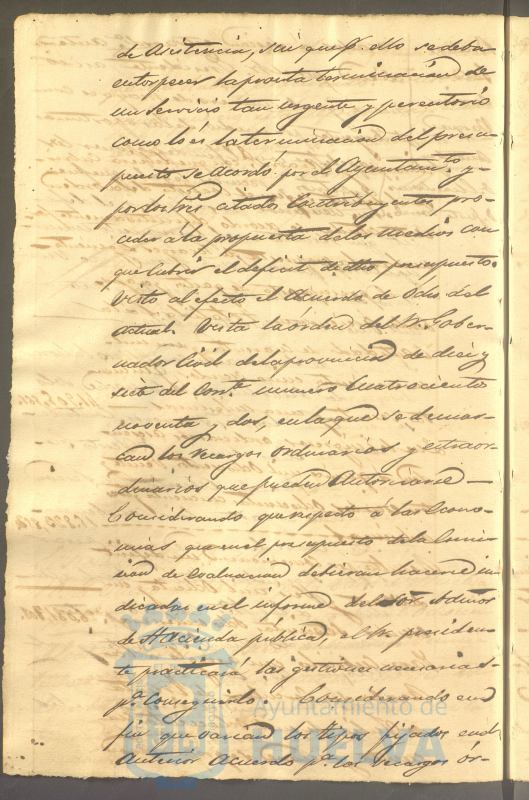 de Asistencia, sin que p.r ello se deba
entorpecer la pronta terminacion de
un servicio tan urgente y perentorio
como lo es la terminacion del presu-
puesto se acordó por el Ayuntam.to y
por los Sres citados Contribuyentes, pro-
ceder á la propuesta de los medios con
que cubrir el deficit de dho presupuesto.
Visto al efecto el Acuerdo de Ocho del
actual. Vista la órden del Sr. Gober-
nador Civil de la provincia de diez y
siete del Corr.te numero Cuatrocientos
noventa y dos, en la que se demar-
can los recargos ordinarios y extraor-
dinarios que pueden Autorizarse —
Considerando que respecto a las Econo-
mias que en el presupuesto de la Comi-
sion de Evaluacion debieran hacerse in-
dicadas en el informe del Sor. Admor
de Hacienda pública, el Sr. presiden-
te practicará las gestiones necesarias
p.a Conseguirlo. Considerando en
fin que varian los tipos fijados en el
Anterior Acuerdo p.a los recargos ór-
Ayuntamiento de
HUELVA